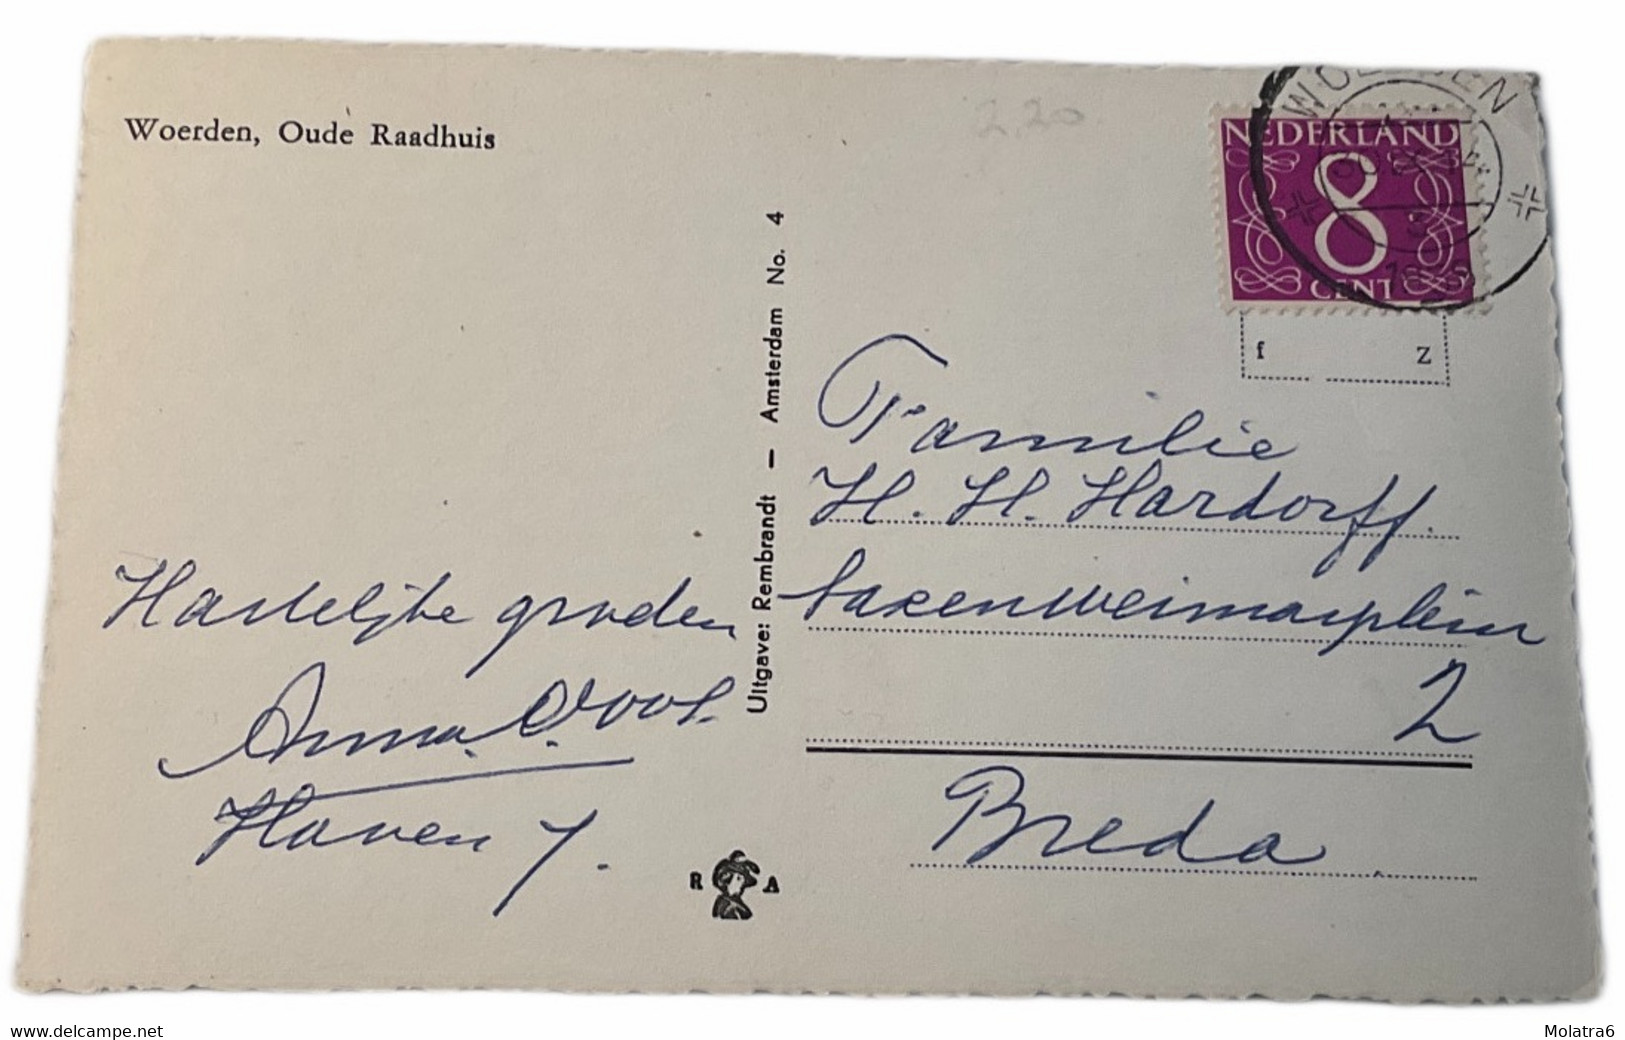 Woerden, Oude Raadhuis
2,20
WOERDEN
NEDERLAND
8
CENT
f z
Uitgave: Rembrandt — Amsterdam No. 4
Hartelijke groeten
Anna
Haven 7.
R A
Familie
H. H. Hardorff.
Saxenweimarplein
2
Breda
www.delcampe.net
Molatra6